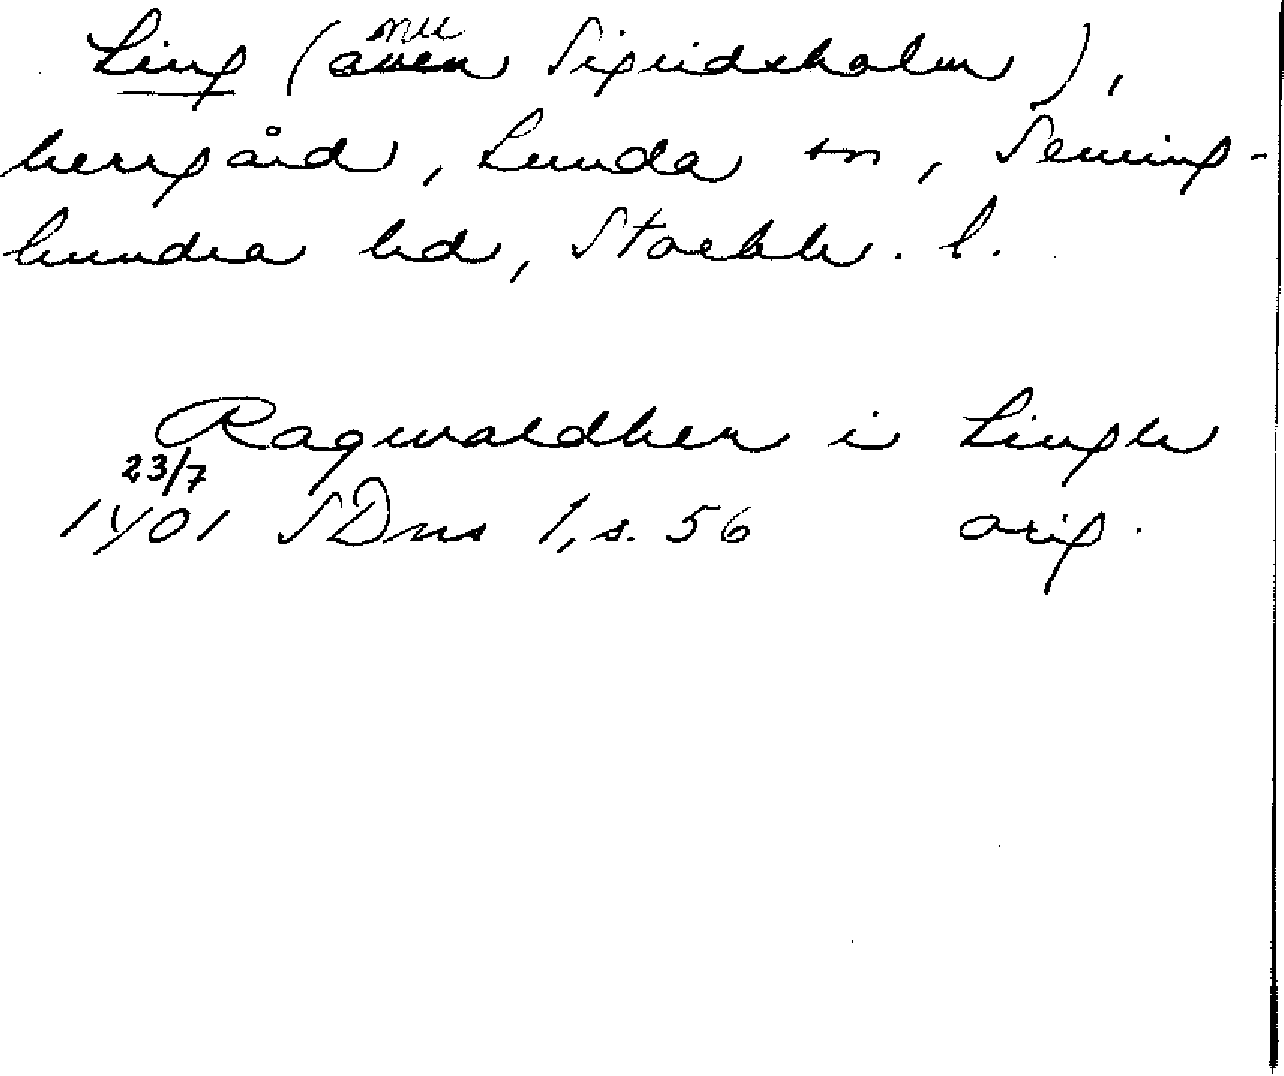 Ling (även nu Sigridsholm),
herrgård, Lunda sn, Seming-
hundra hd, Stockh. l.
Ragwaldher i Lingh
23/7
1401 SDns 1, s. 56 orig.